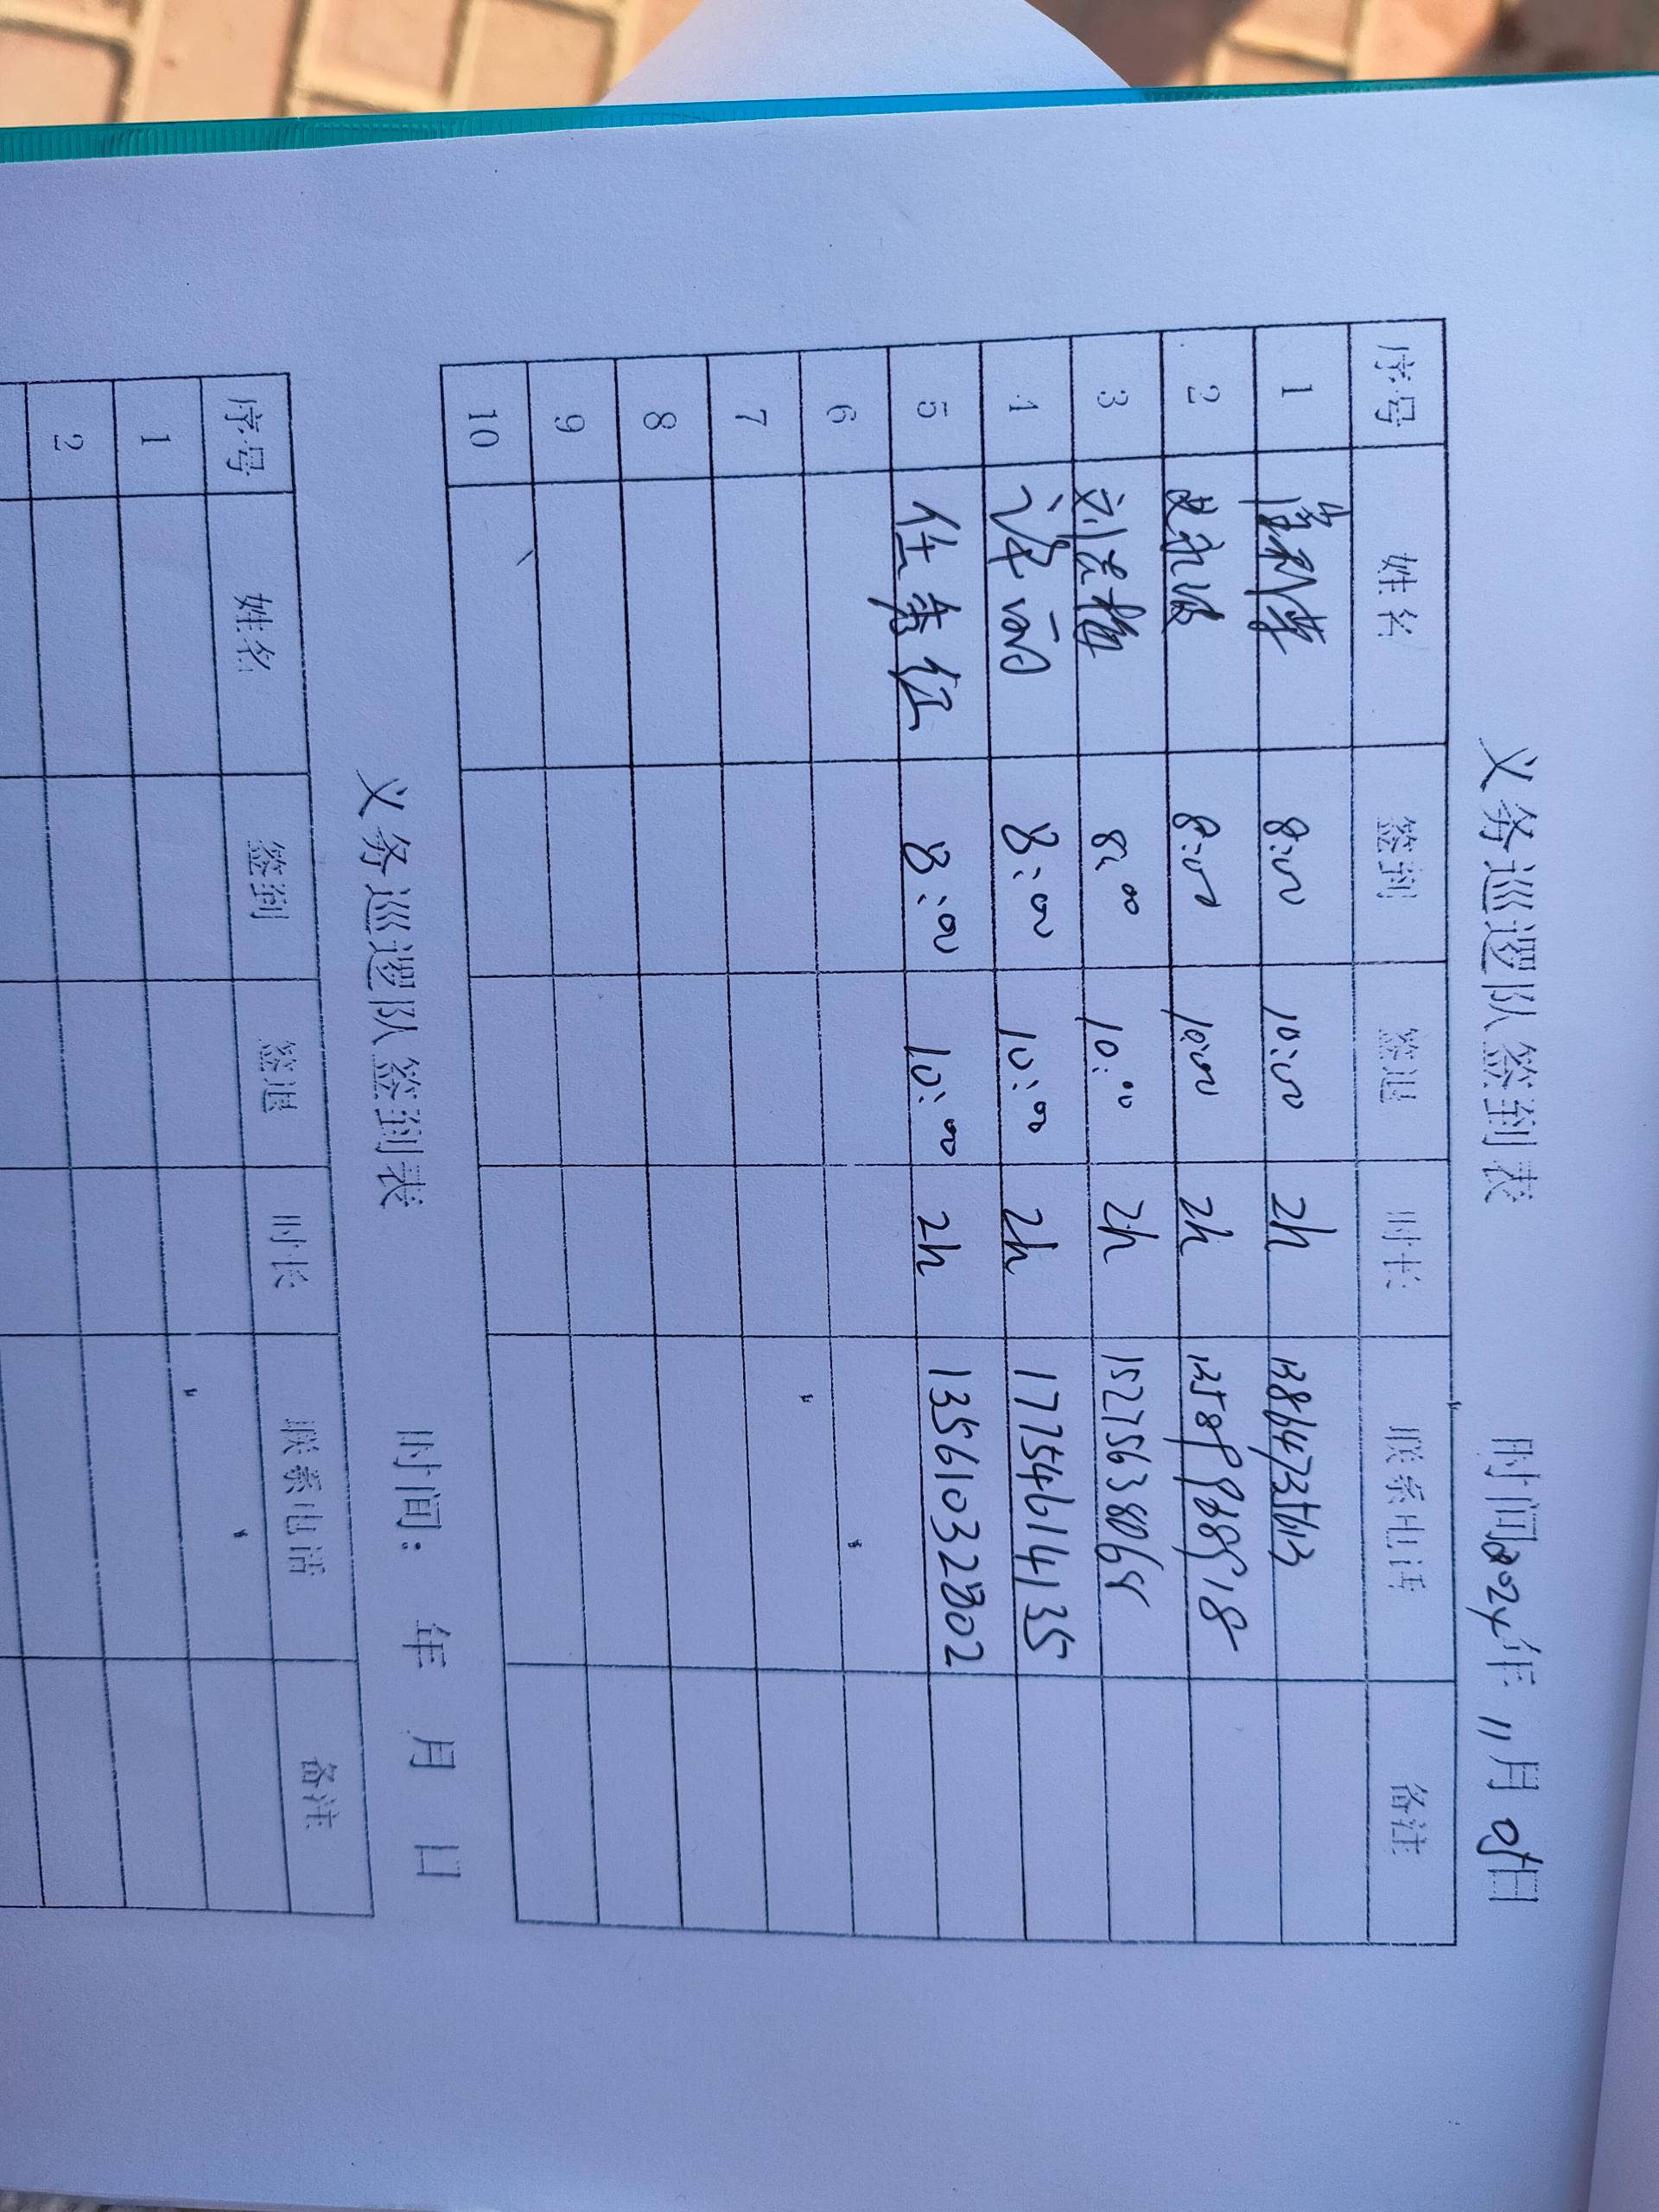 义务巡逻队签到表
时间2024年11月05日
序号 姓名 签到 签退 时长 联系电话 备注
1 8:00 10:00 2h 13864735613
2 8:00 10:00 2h
3 刘 8:00 10:00 2h 15275638065
4 8:00 10:00 2h 17754614135
5 任秀红 8:00 10:00 2h 13561032802
6
7
8
9
10
义务巡逻队签到表
时间: 年 月 日
序号 姓名 签到 签退 时长 联系电话 备注
1
2